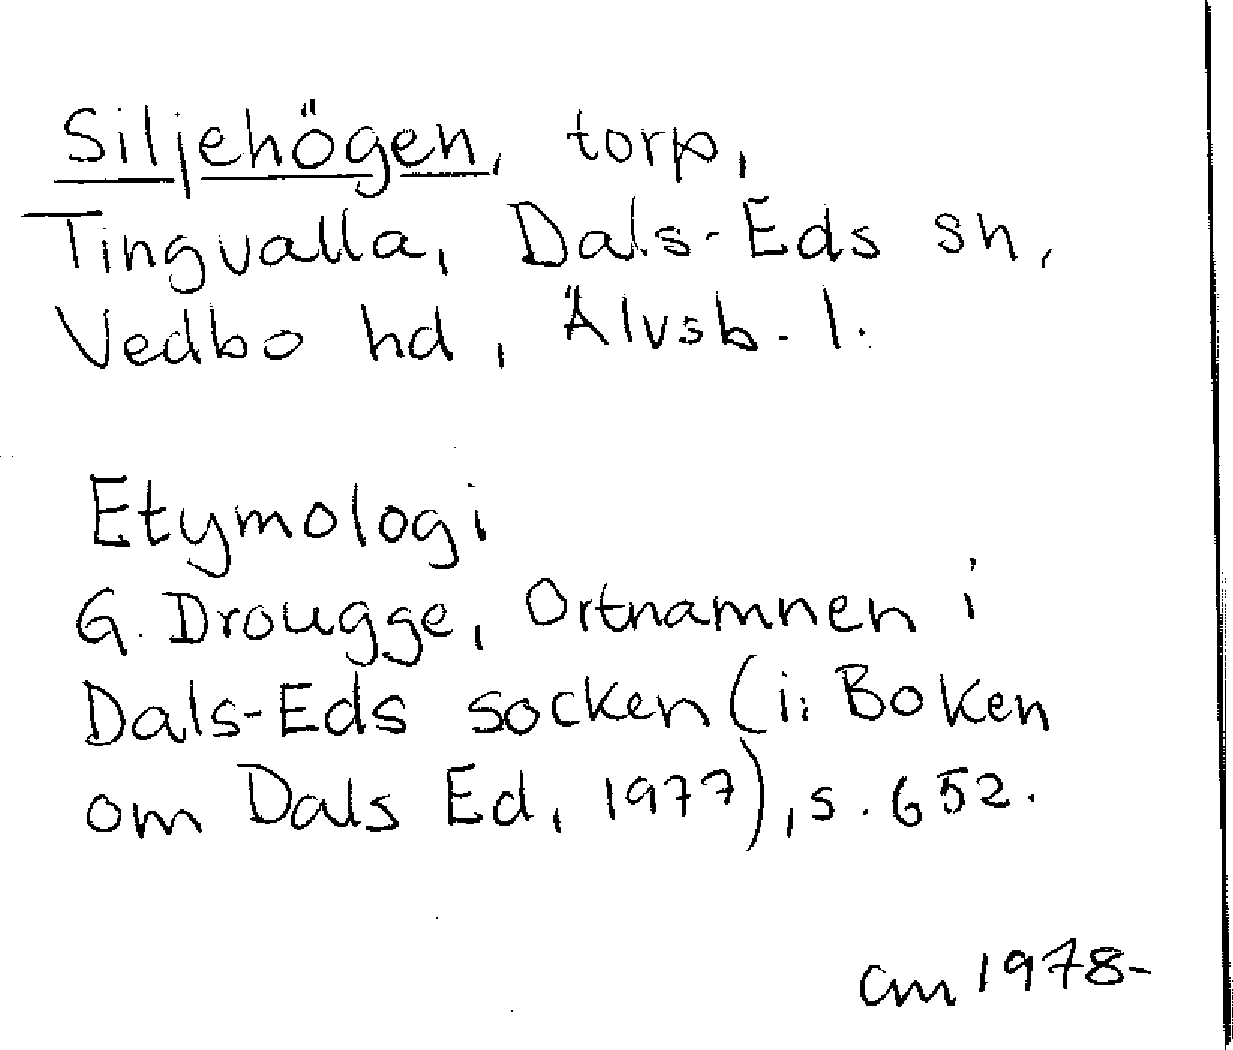 Siljehögen, torp,
Tingvalla, Dals-Eds sn,
Vedbo hd, Älvsb. l.
Etymologi
G. Drougge, Ortnamnen i
Dals-Eds socken (i: Boken
om Dals Ed, 1977), s. 652.
CM 1978-